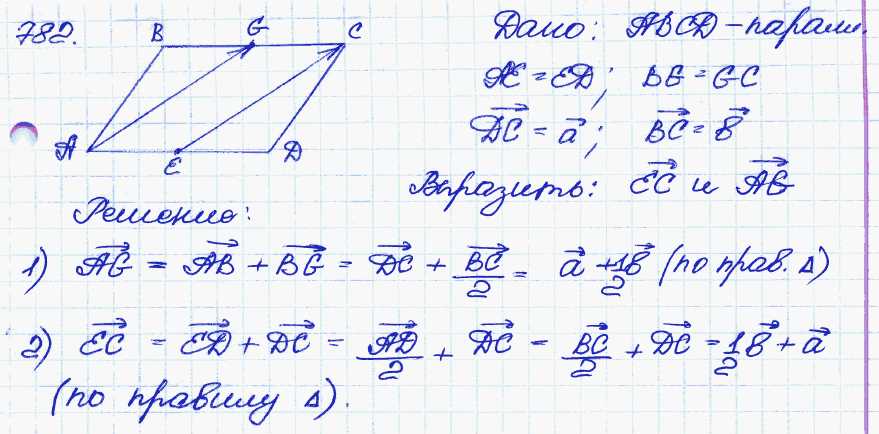 782.
B G C
A E D
Дано: ABCD - паралл.
AE = ED; BG = GC
\vec{DC} = \vec{a}; \vec{BC} = \vec{b}
Выразить: \vec{EC} и \vec{AG}
Решение:
1) \vec{AG} = \vec{AB} + \vec{BG} = \vec{DC} + \frac{\vec{BC}}{2} = \vec{a} + \frac{1}{2}\vec{b} (по прав. Δ)
2) \vec{EC} = \vec{ED} + \vec{DC} = \frac{\vec{AD}}{2} + \vec{DC} = \frac{\vec{BC}}{2} + \vec{DC} = \frac{1}{2}\vec{b} + \vec{a}
(по правилу Δ).